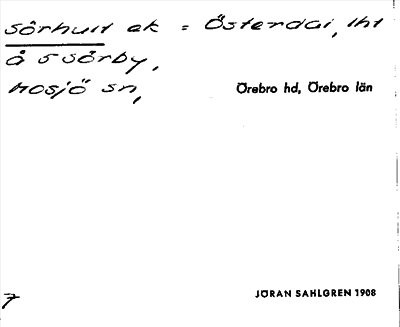 Sörhult ak = Österdal, lht
å S Sörby,
Mosjö sn,
Örebro hd, Örebro län
7
JÖRAN SAHLGREN 1908